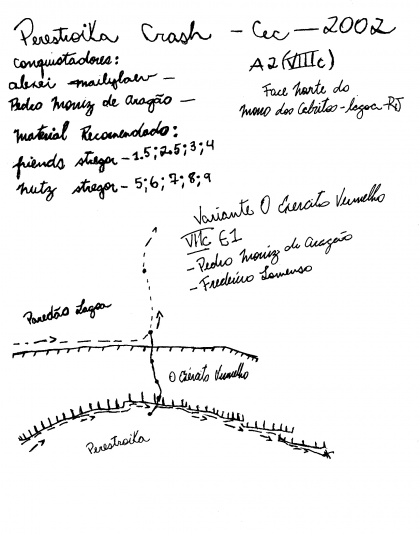 Perestroika Crash - Cec - 2002
A2(VIIIc)
Face norte do
morro dos Cabritos - lagoa - RJ
Conquistadores:
Pedro Moniz de Aragão -
Material Recomendado:
friends stregor - 1.5; 2.5; 3; 4
nutz stregor - 5; 6; 7; 8; 9
Variante O Exército Vermelho
VIIc E1
- Pedro Moniz de Aragão
- Frederico
Paredão Lagoa
O Exército Vermelho
Perestroika